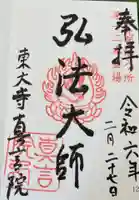 奉拝
令和六年
二月二十七日
弘法大師
東大寺真言院
真言